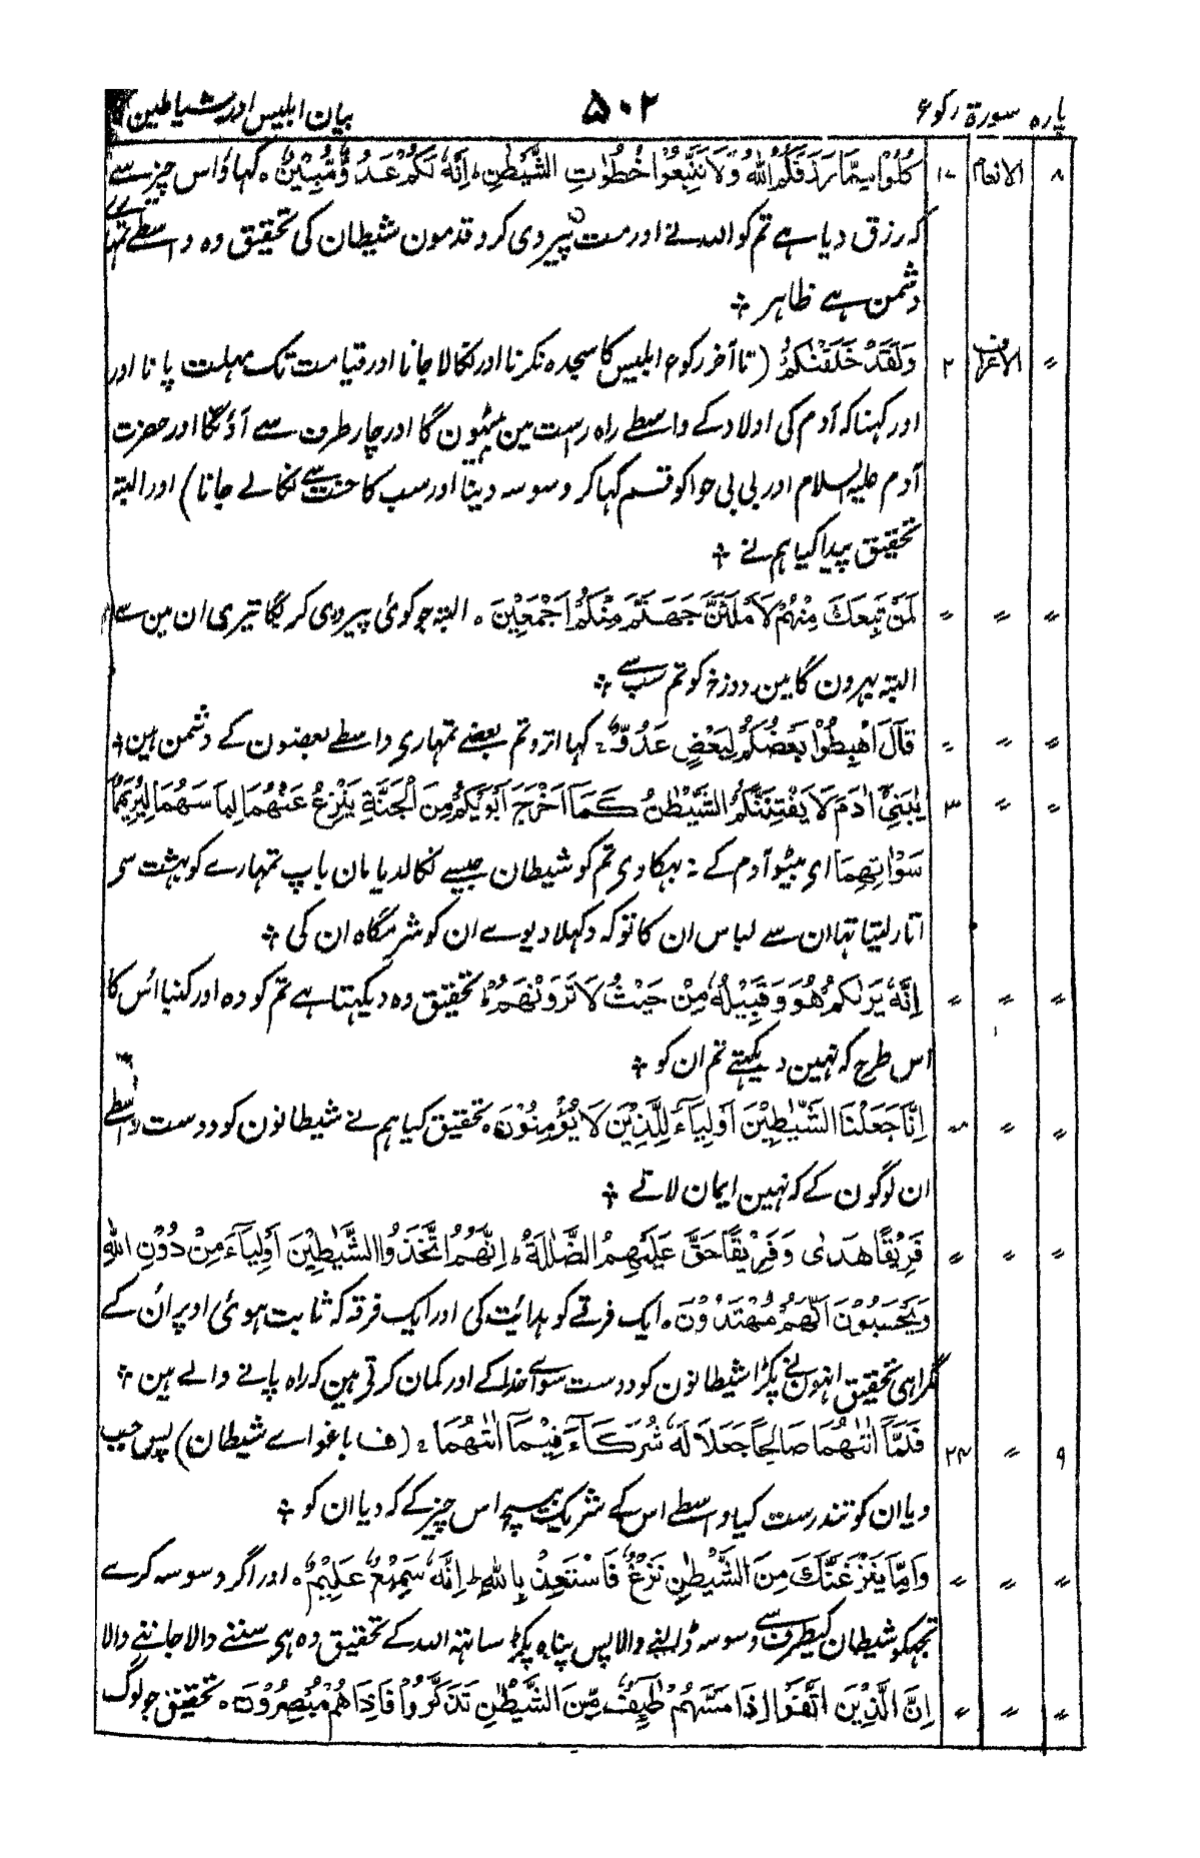 پارہ سورۃ رکوع ۵۰۲ بیان ابلیس اور شیاطین
۸ الانعام ۱۷ كُلُوْا مِمَّا رَزَقَكُمُ اللّٰهُ وَلَا تَتَّبِعُوْا خُطُوٰتِ الشَّيْطٰنِ ؕ اِنَّهٗ لَكُمْ عَدُوٌّ مُّبِيْنٌ ۰ کہاؤ اس چیز سے
کہ رزق دیا ہے تم کو اللہ نے اور مت پیروی کرو قدمون شیطان کی تحقیق وہ واسطے تمہارے
دشمن ہے ظاہر ÷
〃 الاعراف ۲ وَلَقَدْ خَلَقْنٰكُمْ (تا آخر رکوع ابلیس کا سجدہ نکرنا اور نکالا جانا اور قیامت تک مہلت پانا اور
اور کہنا کہ آدم کی اولاد کے واسطے راہ راست مین بیٹھون گا اور چار طرف سے آؤنگا اور حضرت
آدم علیہ السلام اور بی بی حوا کو قسم کہا کر وسوسہ دینا اور سب کا جنت سے نکالے جانا) اور البتہ
تحقیق پیدا کیا ہم نے ÷
〃 〃 〃 لَمَنْ تَبِعَكَ مِنْهُمْ لَاَمْلَئَنَّ جَهَنَّمَ مِنْكُمْ اَجْمَعِيْنَ ۰ البتہ جو کوئی پیروی کریگا تیری ان مین سے
البتہ بہرون گا مین دوزخ کو تم سب سے ÷
〃 〃 〃 قَالَ اهْبِطُوْا بَعْضُكُمْ لِبَعْضٍ عَدُوٌّ ۚ کہا اترو تم بعضے تمہاری واسطے بعضون کے دشمن ہین ÷
〃 〃 ۳ يٰبَنِيْٓ اٰدَمَ لَا يَفْتِنَنَّكُمُ الشَّيْطٰنُ كَمَآ اَخْرَجَ اَبَوَيْكُمْ مِنَ الْجَنَّةِ يَنْزِعُ عَنْهُمَا لِبَاسَهُمَا لِيُرِيَهُمَا
سَوْاٰتِهِمَا ای بیٹو آدم کے نہ بہکاوی تم کو شیطان جیسے نکالدیا مان باپ تمہارے کو بہشت سی
اتار لیتا تہا ان سے لباس ان کا توکہ دکہلا دیوے ان کو شرمگاہ ان کی ÷
〃 〃 〃 اِنَّهٗ يَرٰىكُمْ هُوَ وَقَبِيْلُهٗ مِنْ حَيْثُ لَا تَرَوْنَهُمْ ؕ تحقیق وہ دیکہتا ہے تم کو وہ اور کنبا اس کا
اس طرح کہ نہین دیکہتے تم ان کو ÷
〃 〃 〃 اِنَّا جَعَلْنَا الشَّيٰطِيْنَ اَوْلِيَآءَ لِلَّذِيْنَ لَا يُؤْمِنُوْنَ ۰ تحقیق کیا ہم نے شیطانون کو دوست واسطے
ان لوگون کے کہ نہین ایمان لاتے ÷
〃 〃 〃 فَرِيْقًا هَدٰى وَفَرِيْقًا حَقَّ عَلَيْهِمُ الضَّلٰلَةُ ؕ اِنَّهُمُ اتَّخَذُوا الشَّيٰطِيْنَ اَوْلِيَآءَ مِنْ دُوْنِ اللّٰهِ
وَيَحْسَبُوْنَ اَنَّهُمْ مُّهْتَدُوْنَ ۰ ایک فرقے کو ہدائت کی اور ایک فرقہ کہ ثابت ہوئی اوپر ان کے
گمراہی تحقیق انہون نے پکڑا شیطانون کو دوست سواے خدا کے اور گمان کرتی ہین کہ راہ پانے والے ہین ÷
۹ 〃 ۲۴ فَلَمَّآ اٰتٰهُمَا صَالِحًا جَعَلَا لَهٗ شُرَكَآءَ فِيْمَآ اٰتٰهُمَا ۚ (ف باغواے شیطان) پس جب
دیا ان کو تندرست کیا واسطے اس کے شریک بیچ اس چیز کے کہ دیا ان کو ÷
〃 〃 〃 وَاِمَّا يَنْزَغَنَّكَ مِنَ الشَّيْطٰنِ نَزْغٌ فَاسْتَعِذْ بِاللّٰهِ ؕ اِنَّهٗ سَمِيْعٌ عَلِيْمٌ ۰ اور اگر وسوسہ کرے
تجہکو شیطان کیطرف سے وسوسہ ڈالنے والا پس پناہ پکڑ ساتہہ اللہ کے تحقیق وہ ہی سننے والا جاننے والا
〃 〃 〃 اِنَّ الَّذِيْنَ اتَّقَوْا اِذَا مَسَّهُمْ طٰٓئِفٌ مِّنَ الشَّيْطٰنِ تَذَكَّرُوْا فَاِذَا هُمْ مُّبْصِرُوْنَ ۰ تحقیق جو لوگ